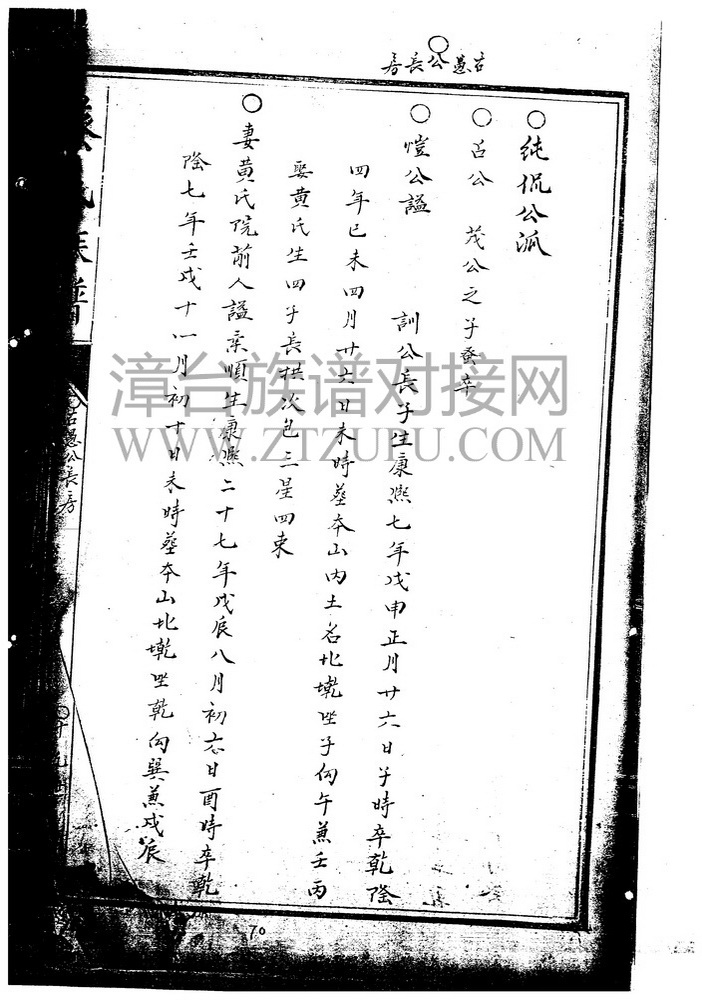 古愚公長房
純侃公派
召公 茂公之子蚤卒
愷公諡
訓公長子生康熙七年戊申正月廿六日子時卒乾隆
四年己未四月廿六日未時葬本山內土名北墘坐子向午兼壬丙
娶黃氏生四子長拱次包三星四束
妻黃氏院前人諡柔順生康熙二十七年戊辰八月初六日酉時卒乾
隆七年壬戌十一月初十日未時葬本山北墘坐乾向巽兼戌辰
氏族譜
古愚公長房
70
漳台族谱对接网
WWW.ZTZUPU.COM